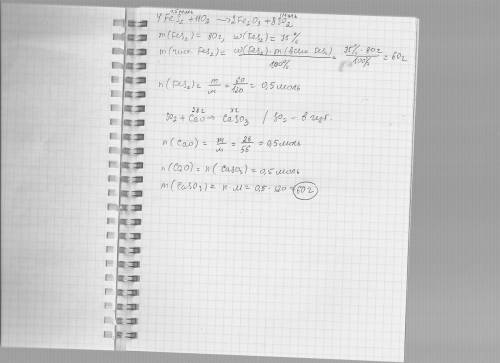 0,5моль 1моль
4FeS₂ + 11O₂ → 2Fe₂O₃ + 8SO₂
m(FeS₂) = 80г, w(FeS₂) = 75%
m(чист. FeS₂) = w(FeS₂) · m(всего FeS₂) / 100% = 75% · 80г / 100% = 60г
n(FeS₂) = m/M = 60/120 = 0,5 моль
28г xг
SO₂ + CaO → CaSO₃ / SO₂ - в изб.
n(CaO) = m/M = 28/56 = 0,5 моль
n(CaO) = n(CaSO₃) = 0,5 моль
m(CaSO₃) = n · M = 0,5 · 120 = 60г